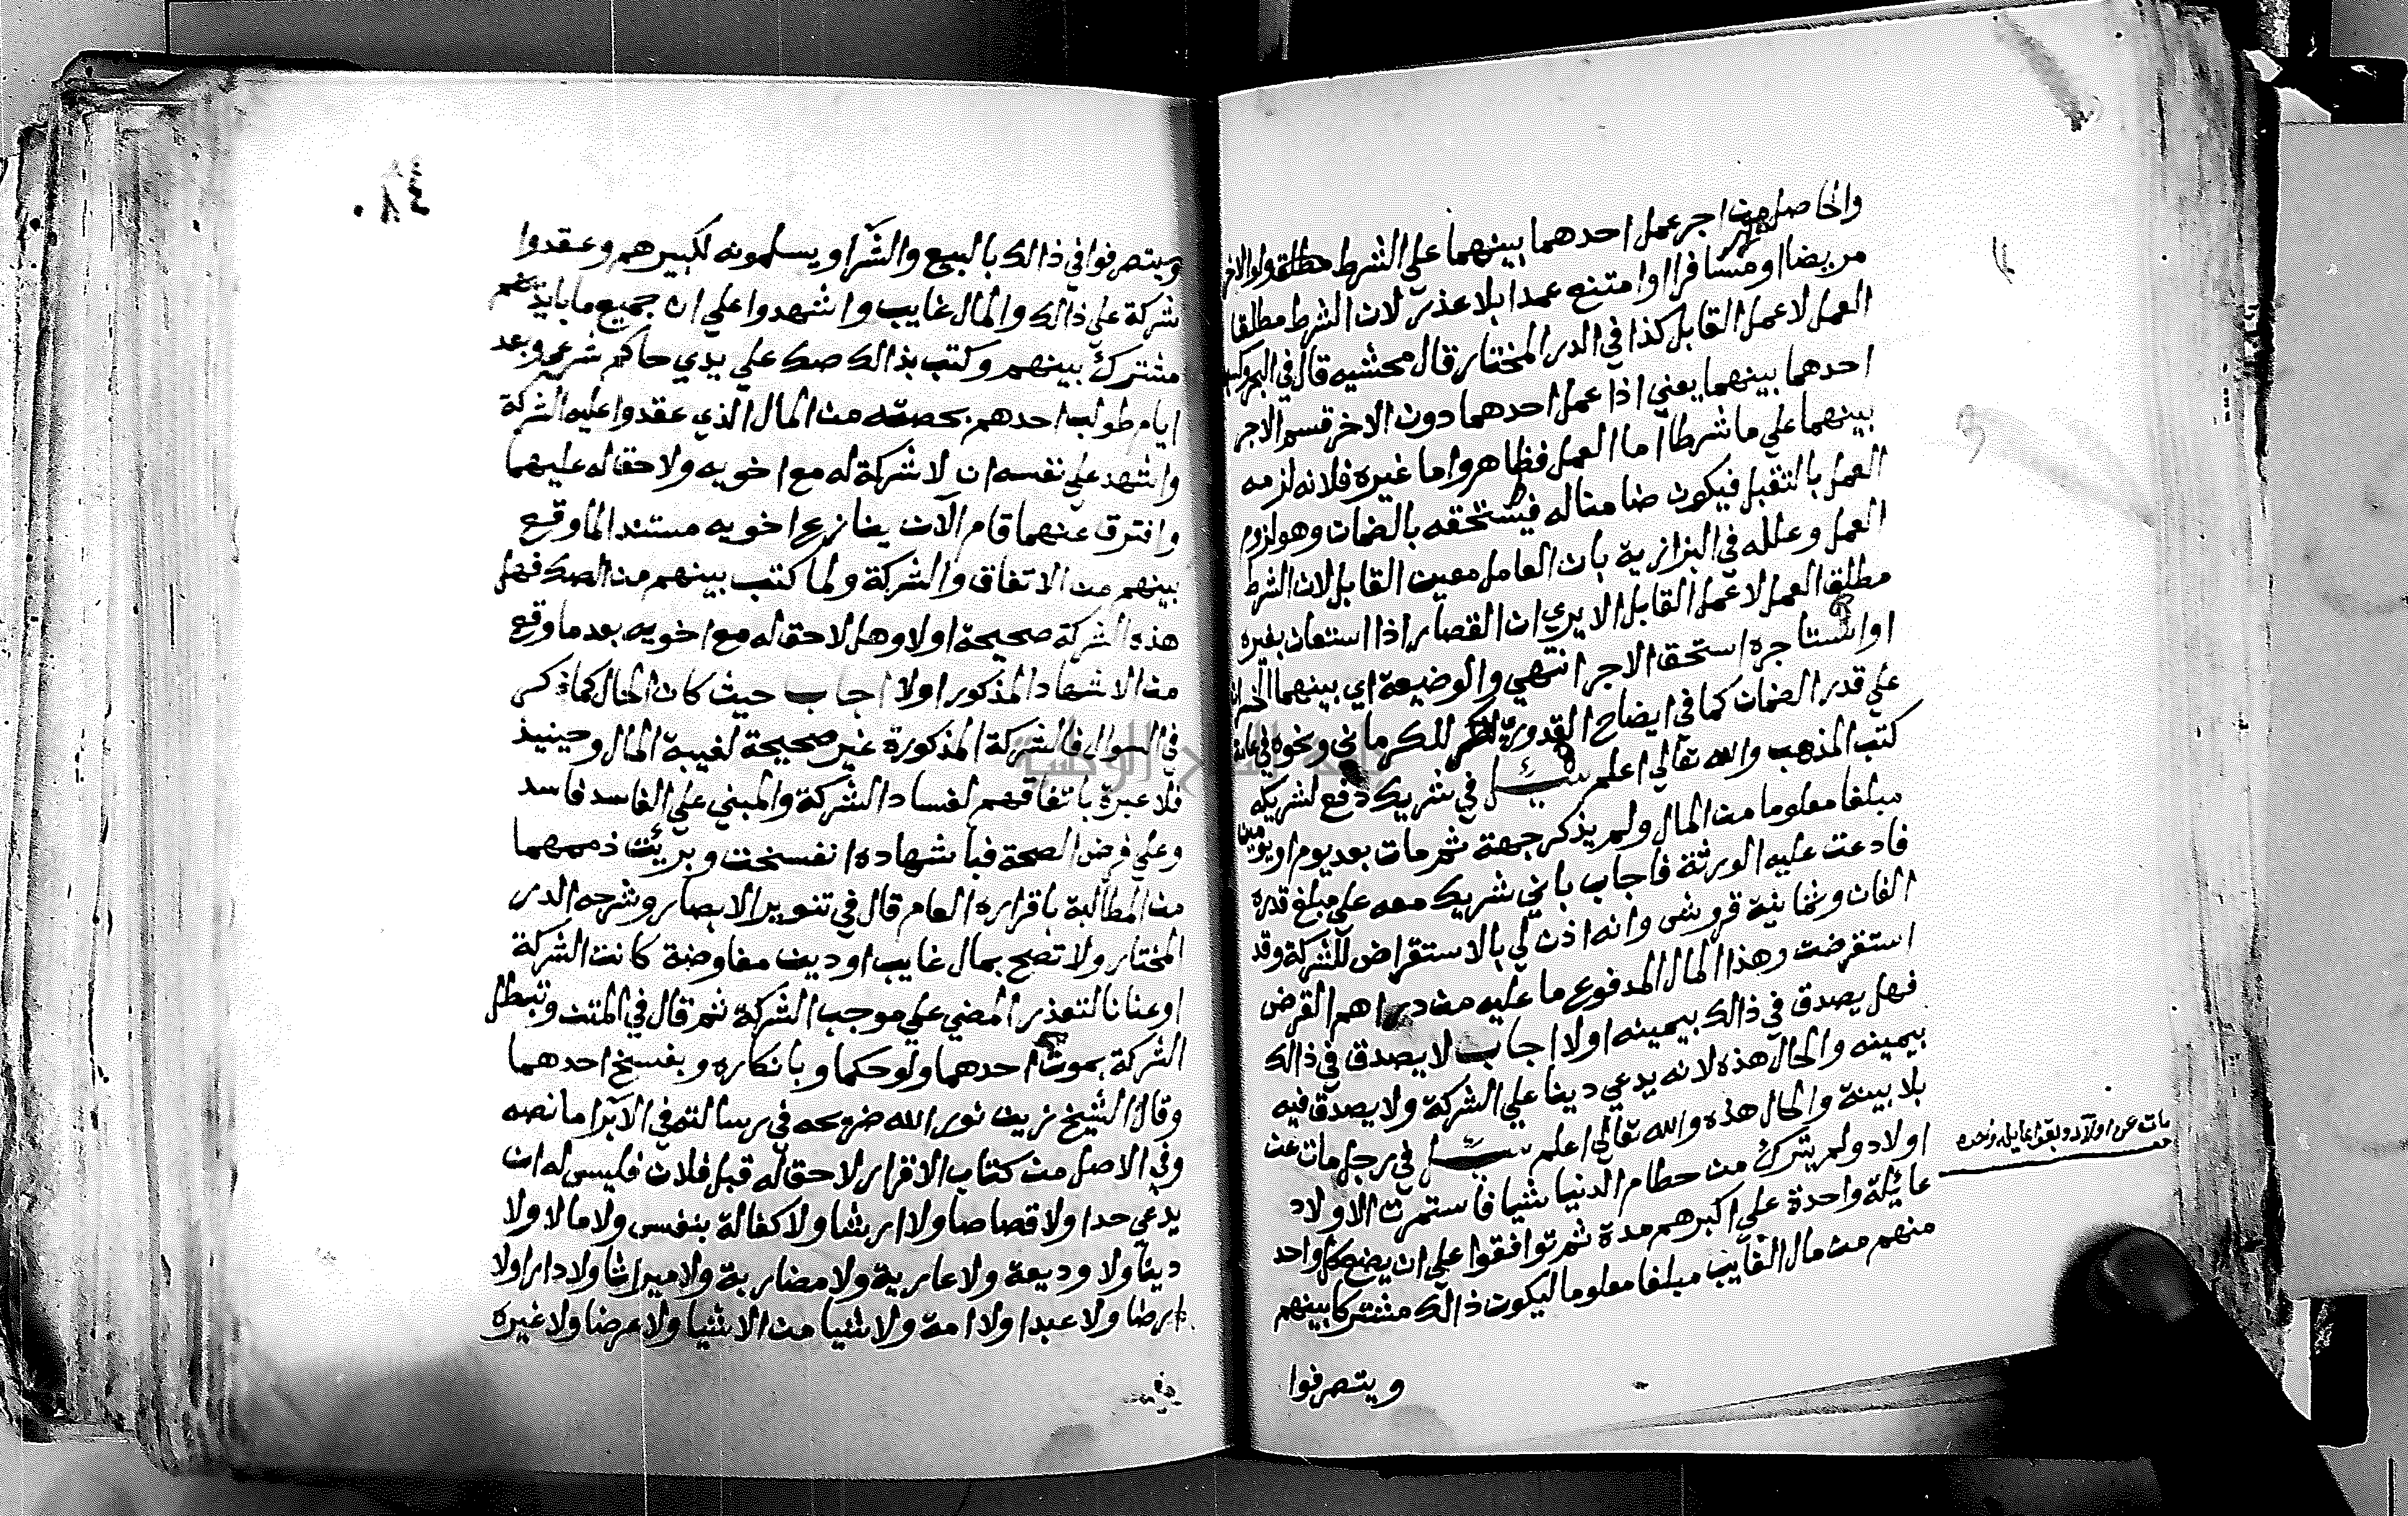 والحاصل من اجر عمل احدهما بينهما علي الشرط مطلقا ولو الاخر
مريضا او مسافرا او امتنع عمدا بلا عذر لان الشرط مطلقا
العمل لا عمل القابل كذا في الدر المختار قال محشيه قال في البحر وكسب
احدهما بينهما يعني اذا عمل احدهما دون الاخر قسم الاجر
بينهما علي ما شرطا اما العمل فظاهر واما غيره فلانه لزمه
العمل بالتقبل فيكون ضامنا له فيستحقه بالضمان وهو لزوم
العمل وعلله في البزازية بان العامل معين القابل لان الشرط
مطلق العمل لا عمل القابل الا يري ان القصار اذا استعان بغيره
او استاجره استحق الاجر انتهي والوضيعة اي بينهما الخسران
علي قدر الضمان كما في ايضاح القدوري للكرماني ونحوه في عامة
كتب المذهب والله تعالي اعلم سئل في شريك دفع لشريكه
مبلغا معلوما من المال ولم يذكر جهة ثم مات بعد يوم او يومين
فادعت عليه الورثة فاجاب باني شريك معه علي مبلغ قدره
الفان وثمانية قروش وانه اذن لي بالاستقراض للشركة وقد
استقرضت وهذا المال المدفوع ما عليه من دراهم القرض
فهل يصدق في ذالك بيمينه او لا اجاب لا يصدق في ذالك
بيمينه والحال هذه لانه يدعي دينا علي الشركة ولا يصدق فيه
بلا بينة والحال هذه والله تعالي اعلم سئل في رجل مات عن
اولاد ولم يترك من حطام الدنيا شيا فاستمرت الاولاد
عائلة واحدة علي اكبرهم مدة ثم توافقوا علي ان يضع كل واحد
منهم من مال الغايب مبلغا معلوما ليكون ذالك مشتركا بينهم
ويتصرفوا
مات عن اولاد وبقوا عايلة وحده
ويتصرفوا في ذالك بالبيع والشرا ويسلمونه لكبيرهم وعقدوا
شركة علي ذالك والمال غايب واشهدوا علي ان جميع ما بايديهم
مشترك بينهم وكتب بذالك صك علي يدي حاكم شرعي وبعد
ايام طولب احدهم بحصته من المال الذي عقدوا عليه الشركة
واشهد علي نفسه ان لا شركة له مع اخويه ولا حق له عليهما
وافترق عنهما قام الآن ينازع اخويه مستندا لما وقع
بينهم من الاتفاق والشركة ولما كتب بينهم من الصك فهل
هذه الشركة صحيحة او لا وهل لا حق له مع اخويه بعد ما وقع
من الاشهاد المذكور او لا اجاب حيث كان المال كما ذكر
في السوال فالشركة المذكورة غير صحيحة لغيبة المال وحينيذ
فلا عبرة باتفاقهم لفساد الشركة والمبني علي الفاسد فاسد
وعلي فرض الصحة فباشهاده انفسخت وبريئت ذممهما
من المطالبة باقراره العام قال في تنوير الابصار وشرحه الدر
المختار ولا تصح بمال غايب او دين مفاوضة كانت الشركة
او عنانا لتعذر المضي علي موجب الشركة ثم قال في المتن وتبطل
الشركة بموت احدهما ولو حكما وبانكاره وبفسخ احدهما
وقال الشيخ زين نور الله ضريحه في رسالته في الابرا ما نصه
وفي الاصل من كتاب الاقرار لا حق له قبل فلان فليس له ان
يدعي حدا ولا قصاصا ولا ارشا ولا كفالة بنفس ولا مالا ولا
دينا ولا وديعة ولا عارية ولا مضاربة ولا ميراثا ولا دارا ولا
ارضا ولا عبدا ولا امة ولا شيا من الاشيا ولا عرضا ولا غيره